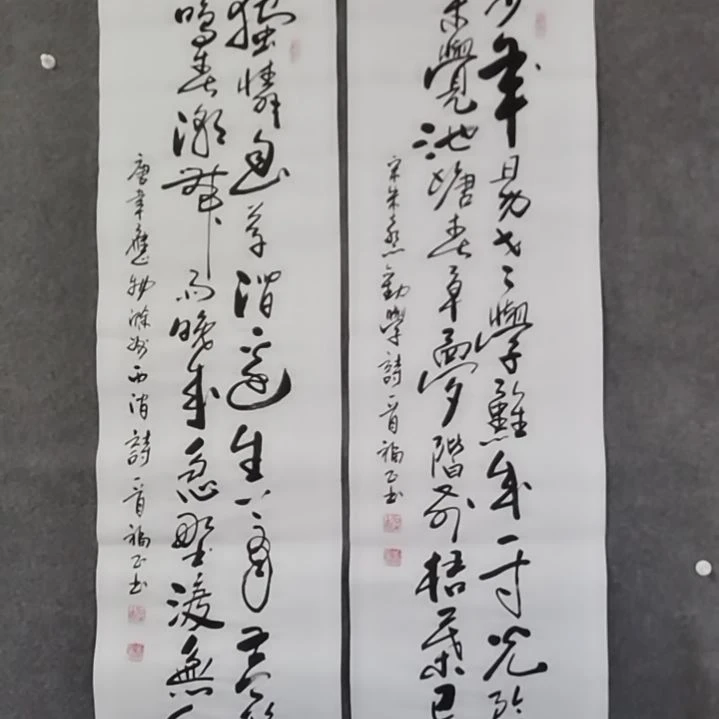 少年易老學難成一寸光陰
未覺池塘春草夢階前梧葉已
宋朱熹勸學詩一首福正书
獨憐幽草澗邊生上有黃
鳴春潮帶雨晚來急野渡無人
唐韋應物滁州西澗詩一首福正书